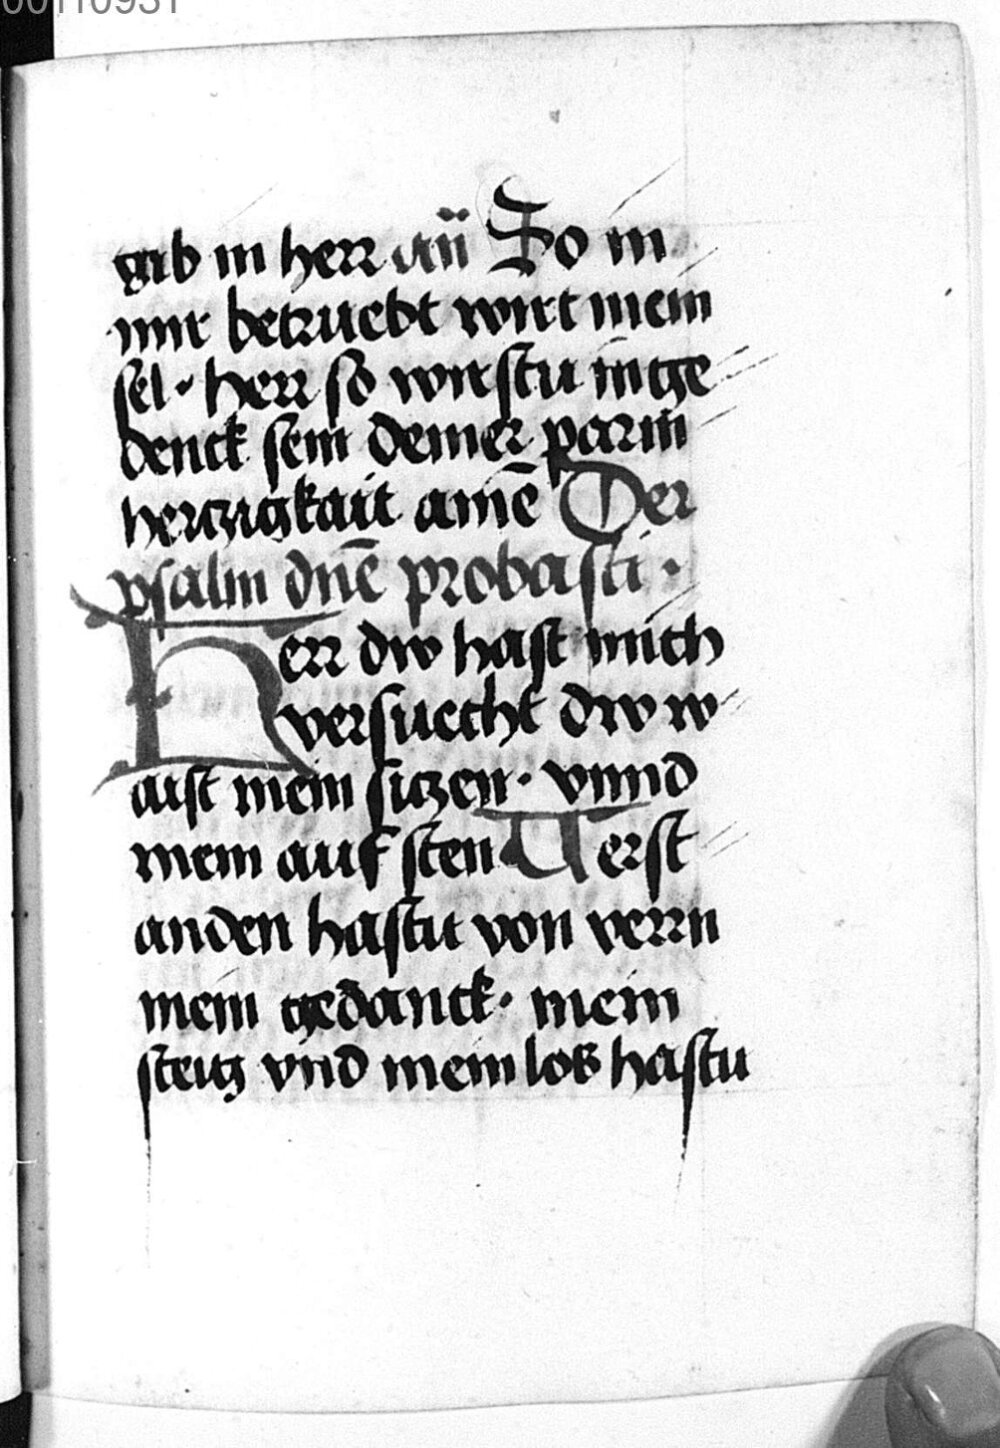 00110931
gib in herr an̈ So in
mir betruebt wirt mein
sel · herr so wirstu inge
denck sein deiner parm
hertzigkait amē Der
psalm dn̄e probasti ·
Herr dw hast mich
versuecht dw w
aist mein sitzen · vnnd
mein auf sten Uerst
anden hastu von verrn
mein gedanck · mein
steig vnd mein los hastu